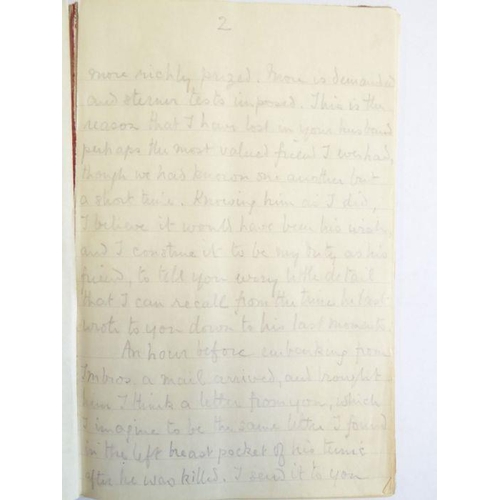 2
more richly prized. More is demanded
and sterner tests imposed. This is the
reason that I have lost in your husband
perhaps the most valued friend I ever had,
though we had known one another but
a short time. Knowing him as I did,
I believe it would have been his wish,
and I construe it to be my duty as his
friend, to tell you every little detail
that I can recall from the time he last
wrote to you down to his last moments.
An hour before embarking from
Imbros a mail arrived, and brought
him I think a letter from you, which
I imagine to be the same letter I found
in the left breast pocket of his tunic
after he was killed. I send it to you